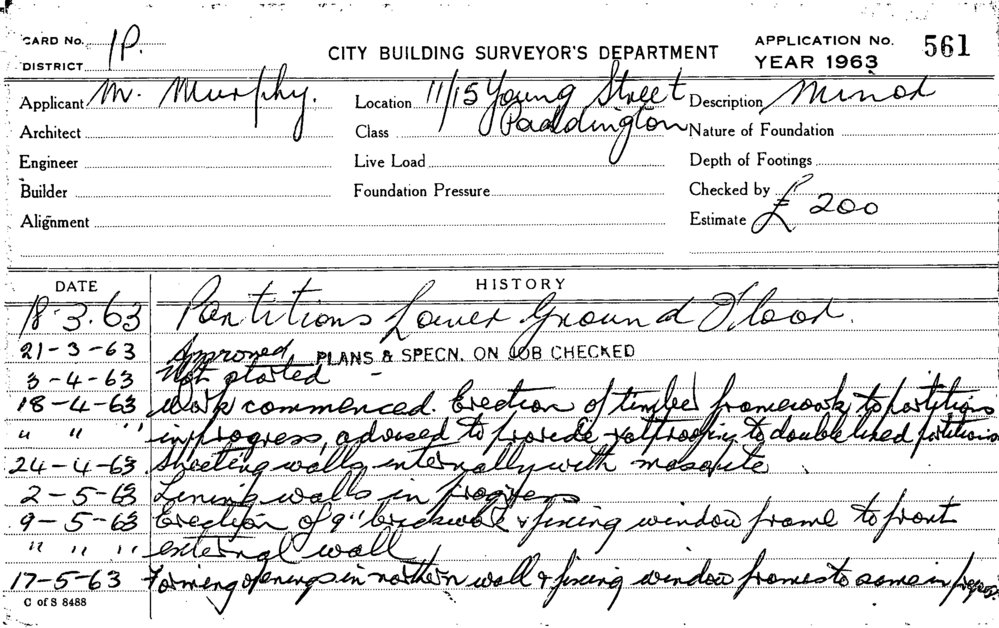 CARD No. 1P.
DISTRICT
CITY BUILDING SURVEYOR'S DEPARTMENT
APPLICATION No. 561
YEAR 1963
Applicant M. Murphy.
Location 11/15 Young Street Paddington
Description Minor
Architect
Class
Nature of Foundation
Engineer
Live Load
Depth of Footings
Builder
Foundation Pressure
Checked by
Alignment
Estimate £ 200
DATE HISTORY
18.3.63 Partitions Lower Ground Floor.
21-3-63 Approved, PLANS & SPECN. ON JOB CHECKED
3-4-63 Not started -
18-4-63 Work commenced. Erection of timber framework to partitions
" " " in progress, advised to provide ratproofing to double lined partitions
24-4-63 Sheeting walls internally with masonite
2-5-63 Lining walls in progress
9-5-63 Erection of 9" brickwork & fixing window frame to front
" " " external wall
17-5-63 Forming openings in northern wall & fixing window frames to same in progress.
C of S 8488